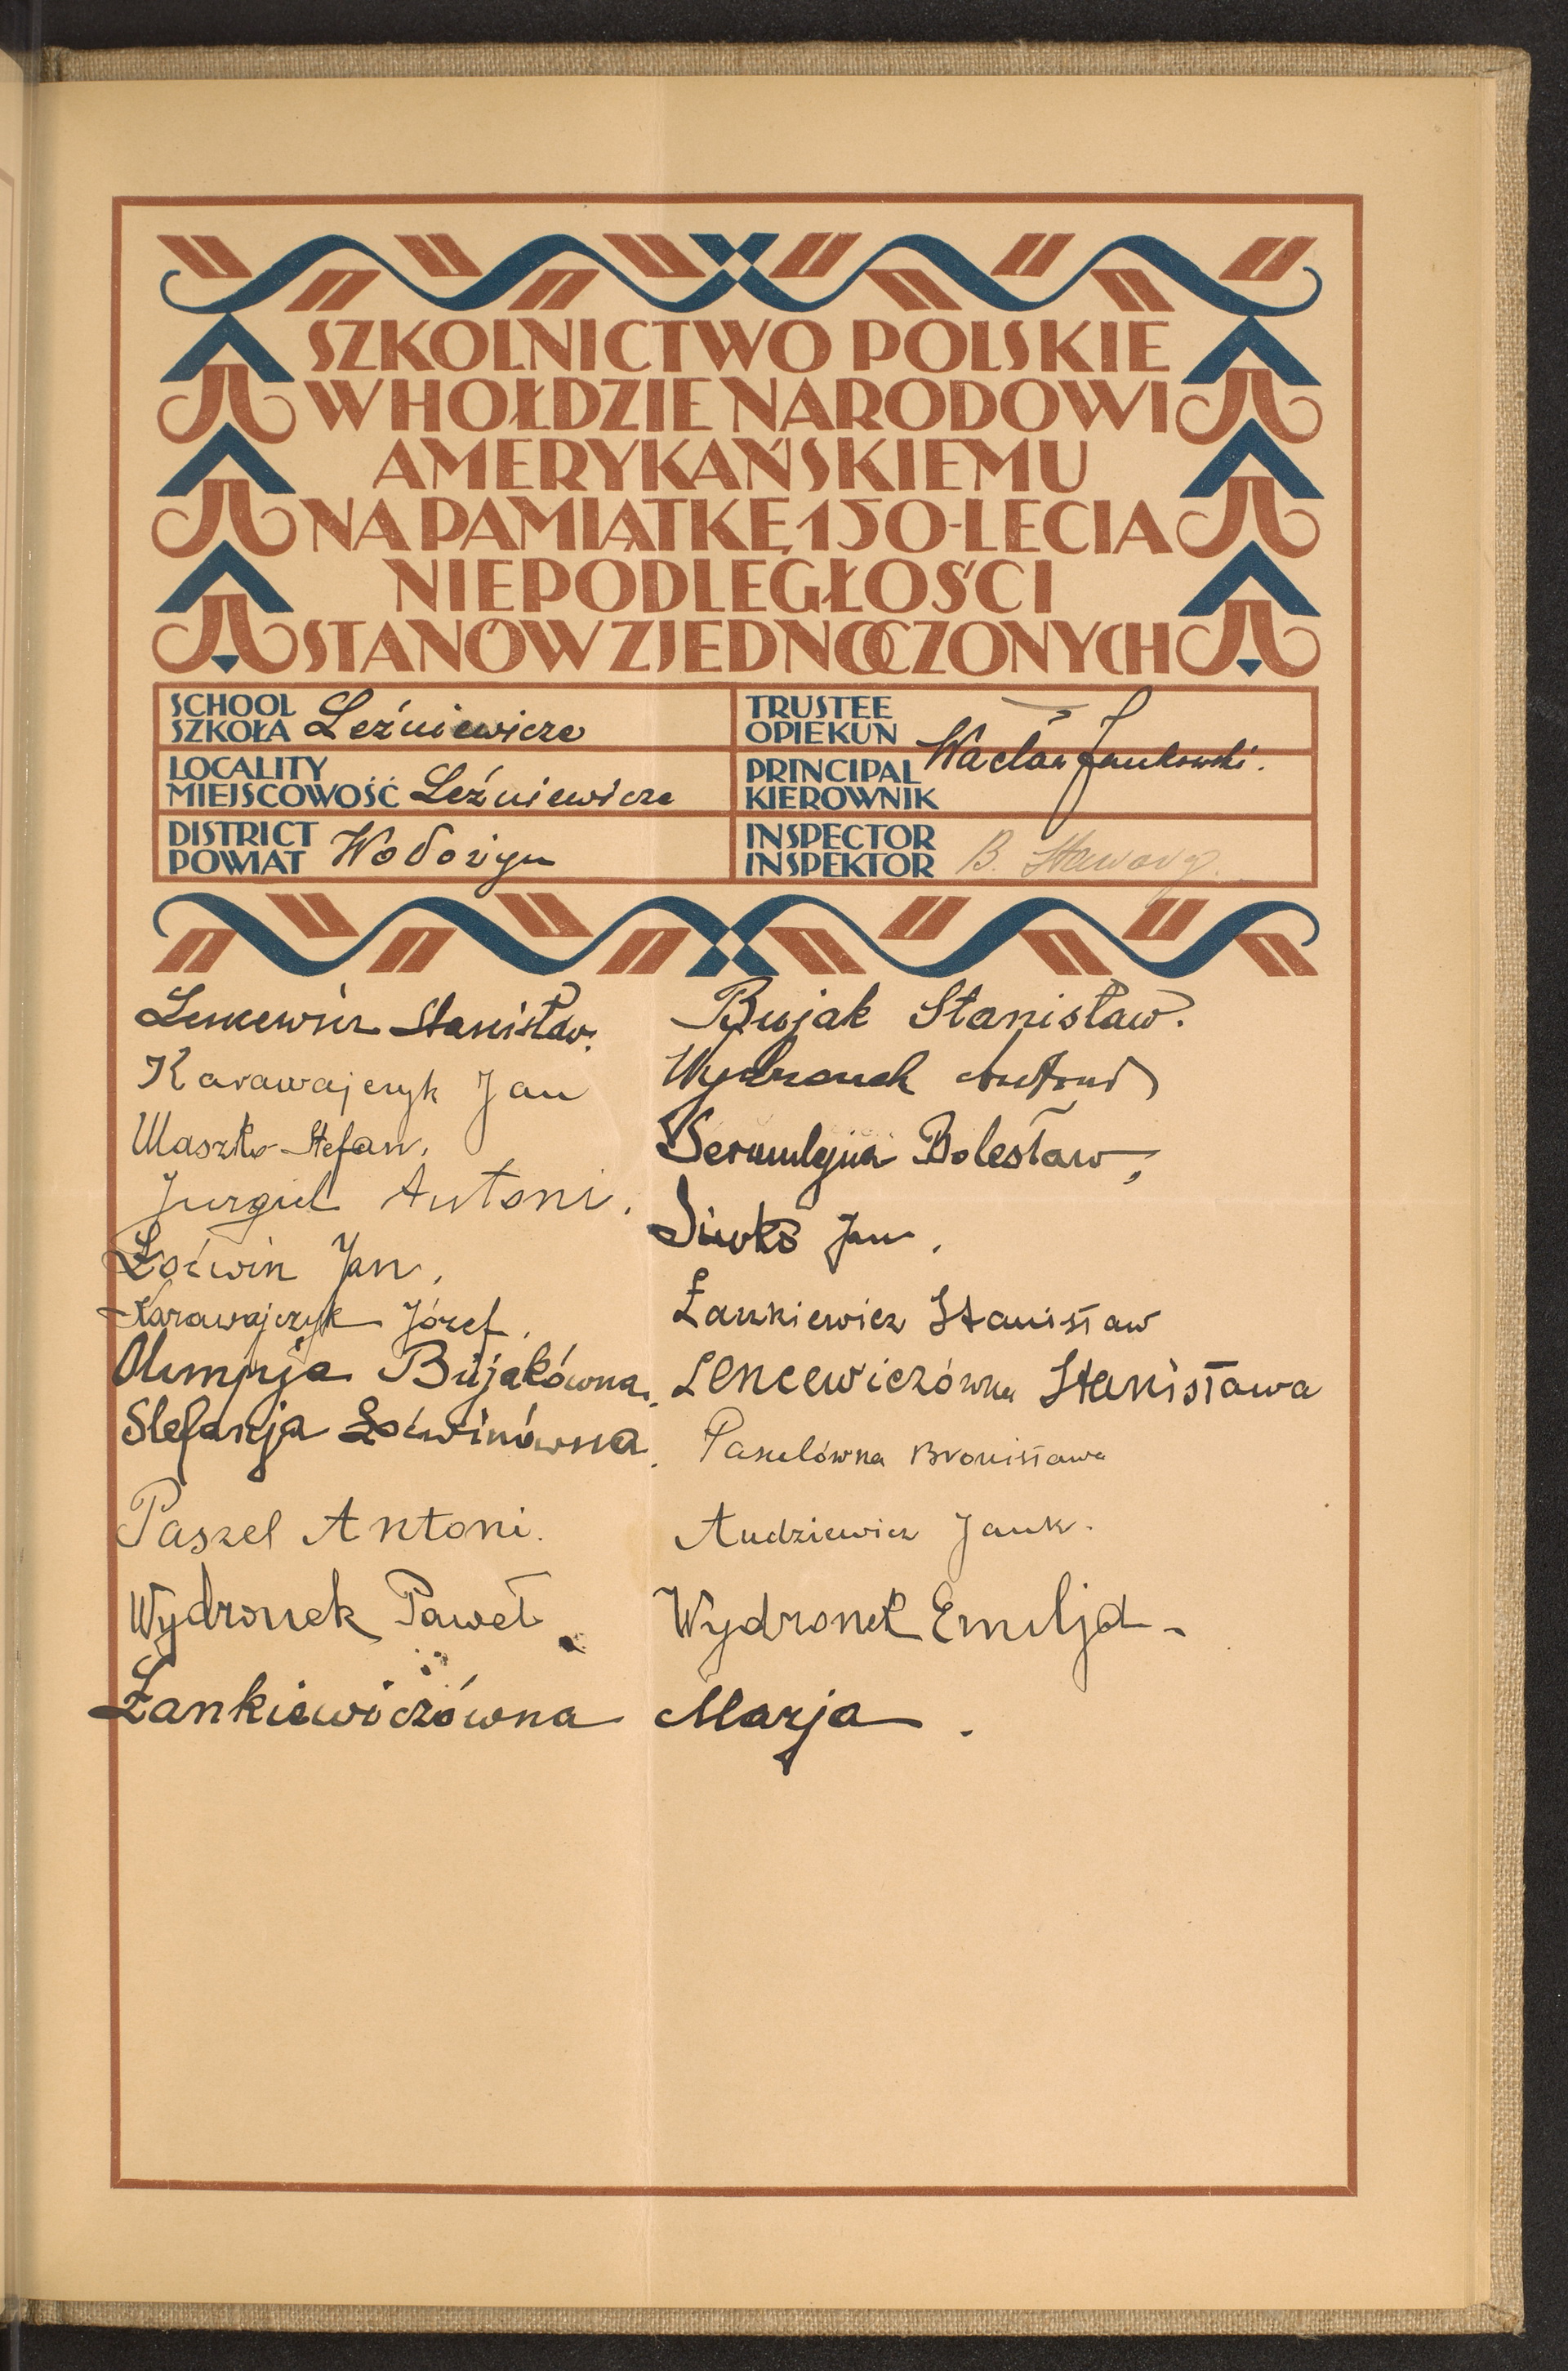 SZKOLNICTWO POLSKIE
W HOŁDZIE NARODOWI
AMERYKAŃSKIEMU
NA PAMIĄTKĘ 150-LECIA
NIEPODLEGŁOŚCI
STANÓW ZJEDNOCZONYCH
SCHOOL
SZKOŁA Leźniewicze
LOCALITY
MIEJSCOWOŚĆ Leźniewicze
DISTRICT
POWIAT Wołożyn
TRUSTEE
OPIEKUN
PRINCIPAL
KIEROWNIK Wacław Jankowski.
INSPECTOR
INSPEKTOR B.
Lencewicz Stanisław.
Karawajczyk Jan
Stefan.
Jurgiel Antoni.
Łoćwin Jan.
Karawajczyk Józef.
Olimpja Bujakówna.
Stefanja Łoćwinówna.
Paszel Antoni.
Wydronek Paweł
Bujak Stanisław.
Wydronek Antoni
Bolesław,
Siwko Jan.
Łankiewicz Stanisław
Lencewiczówna Stanisława
Paszlówna Bronisława
Audziewicz
Wydronek Emilja
Łankiewiczówna Marja.